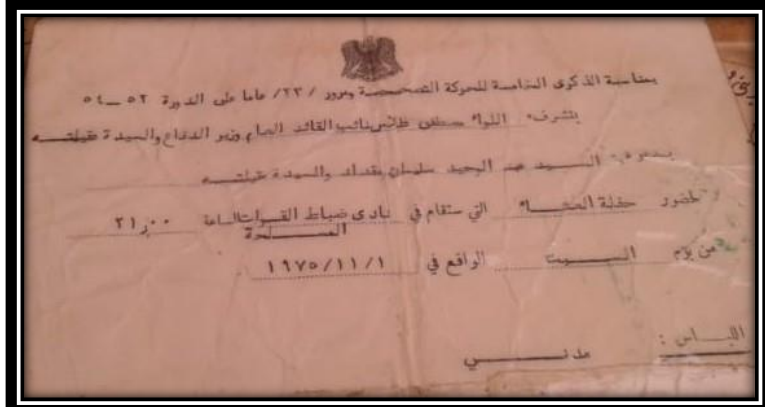 بمناسبة الذكرى الخامسة للحركة التصحيحية ومرور /٢٣/ عاما على الدورة ٥٢ — ٥٤
يتشرف اللواء مصطفى طلاس نائب القائد العام وزير الدفاع والسيدة عقيلته
بدعوة السيد عبد الوحيد سلمان بغداد والسيدة عقيلته
لحضور حفلة العشاء التي ستقام في نادي ضباط القوات الساعة ٢١,٠٠
المسلحة
من يوم السبت الواقع في ١٩٧٥/١١/١
اللباس : مدني